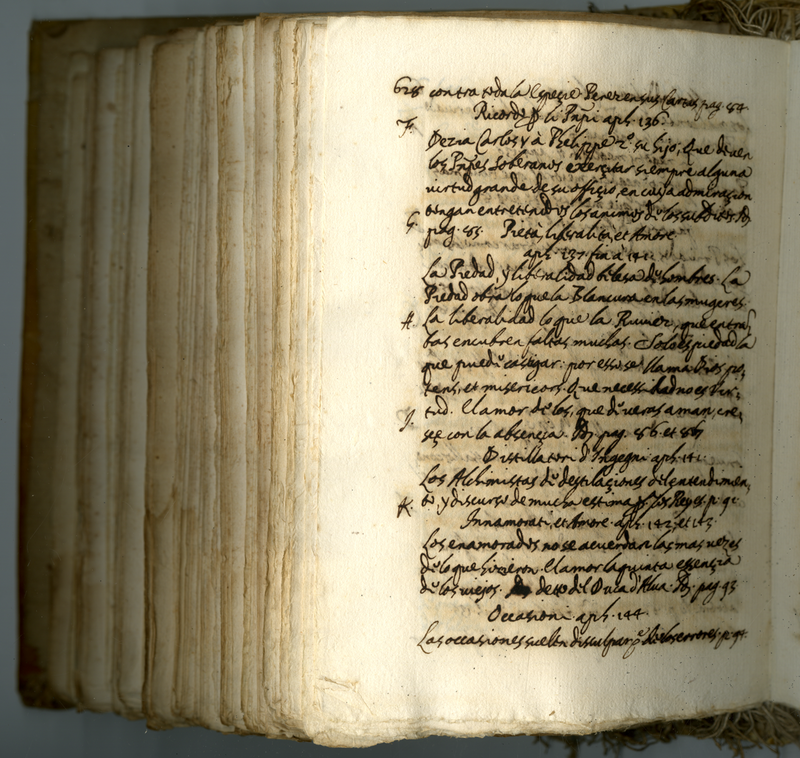 628 contra toda la Especie Perez en sus Cartas pag. 84
Ricordi li Prñi aph. 136.
F. Dezia Carlos v à Phelippe 2º su hijo, Que deuen
los Prñpes Soberanos exerçitar siempre alguna
virtud grande de su offiçio, en cuya admiraçion
tengan entretenidos los animos de los subditos
G. pag. 85. Pietà, liberalità, et Amore
aph. 137. fin à 141.
La Piedad, y liberalidad de los hombres. La
Piedad obra lo que la Blancura en las mugeres.
H. La liberalidad lo que la que entra
bas encubren faltas muchas. Solo es piedad la
que puede castigar: por esso se llama Dios po,
tens, et misericors. Que necessidad no es vir,
J. tud. El amor de los, que de veras aman, cre,
sce con la absençia. pag. 86. et 867
Distillatori d'Ingegni aph. 141.
Los Alchimistas de destilaçiones del entendimien,
K. to, y discurso de mucha estima los Reyes. p. 91.
Innamorati, et Amore. aph. 142. et 143.
Los enamorados no se acuerdan las mas vezes
de lo que hizieron. El amor la quinta essençia
de los viejos. detto del Duca d'Alua pag. 93
Occasioni aph. 144.
Las occasiones suelen disculpar los errores. p. 94.